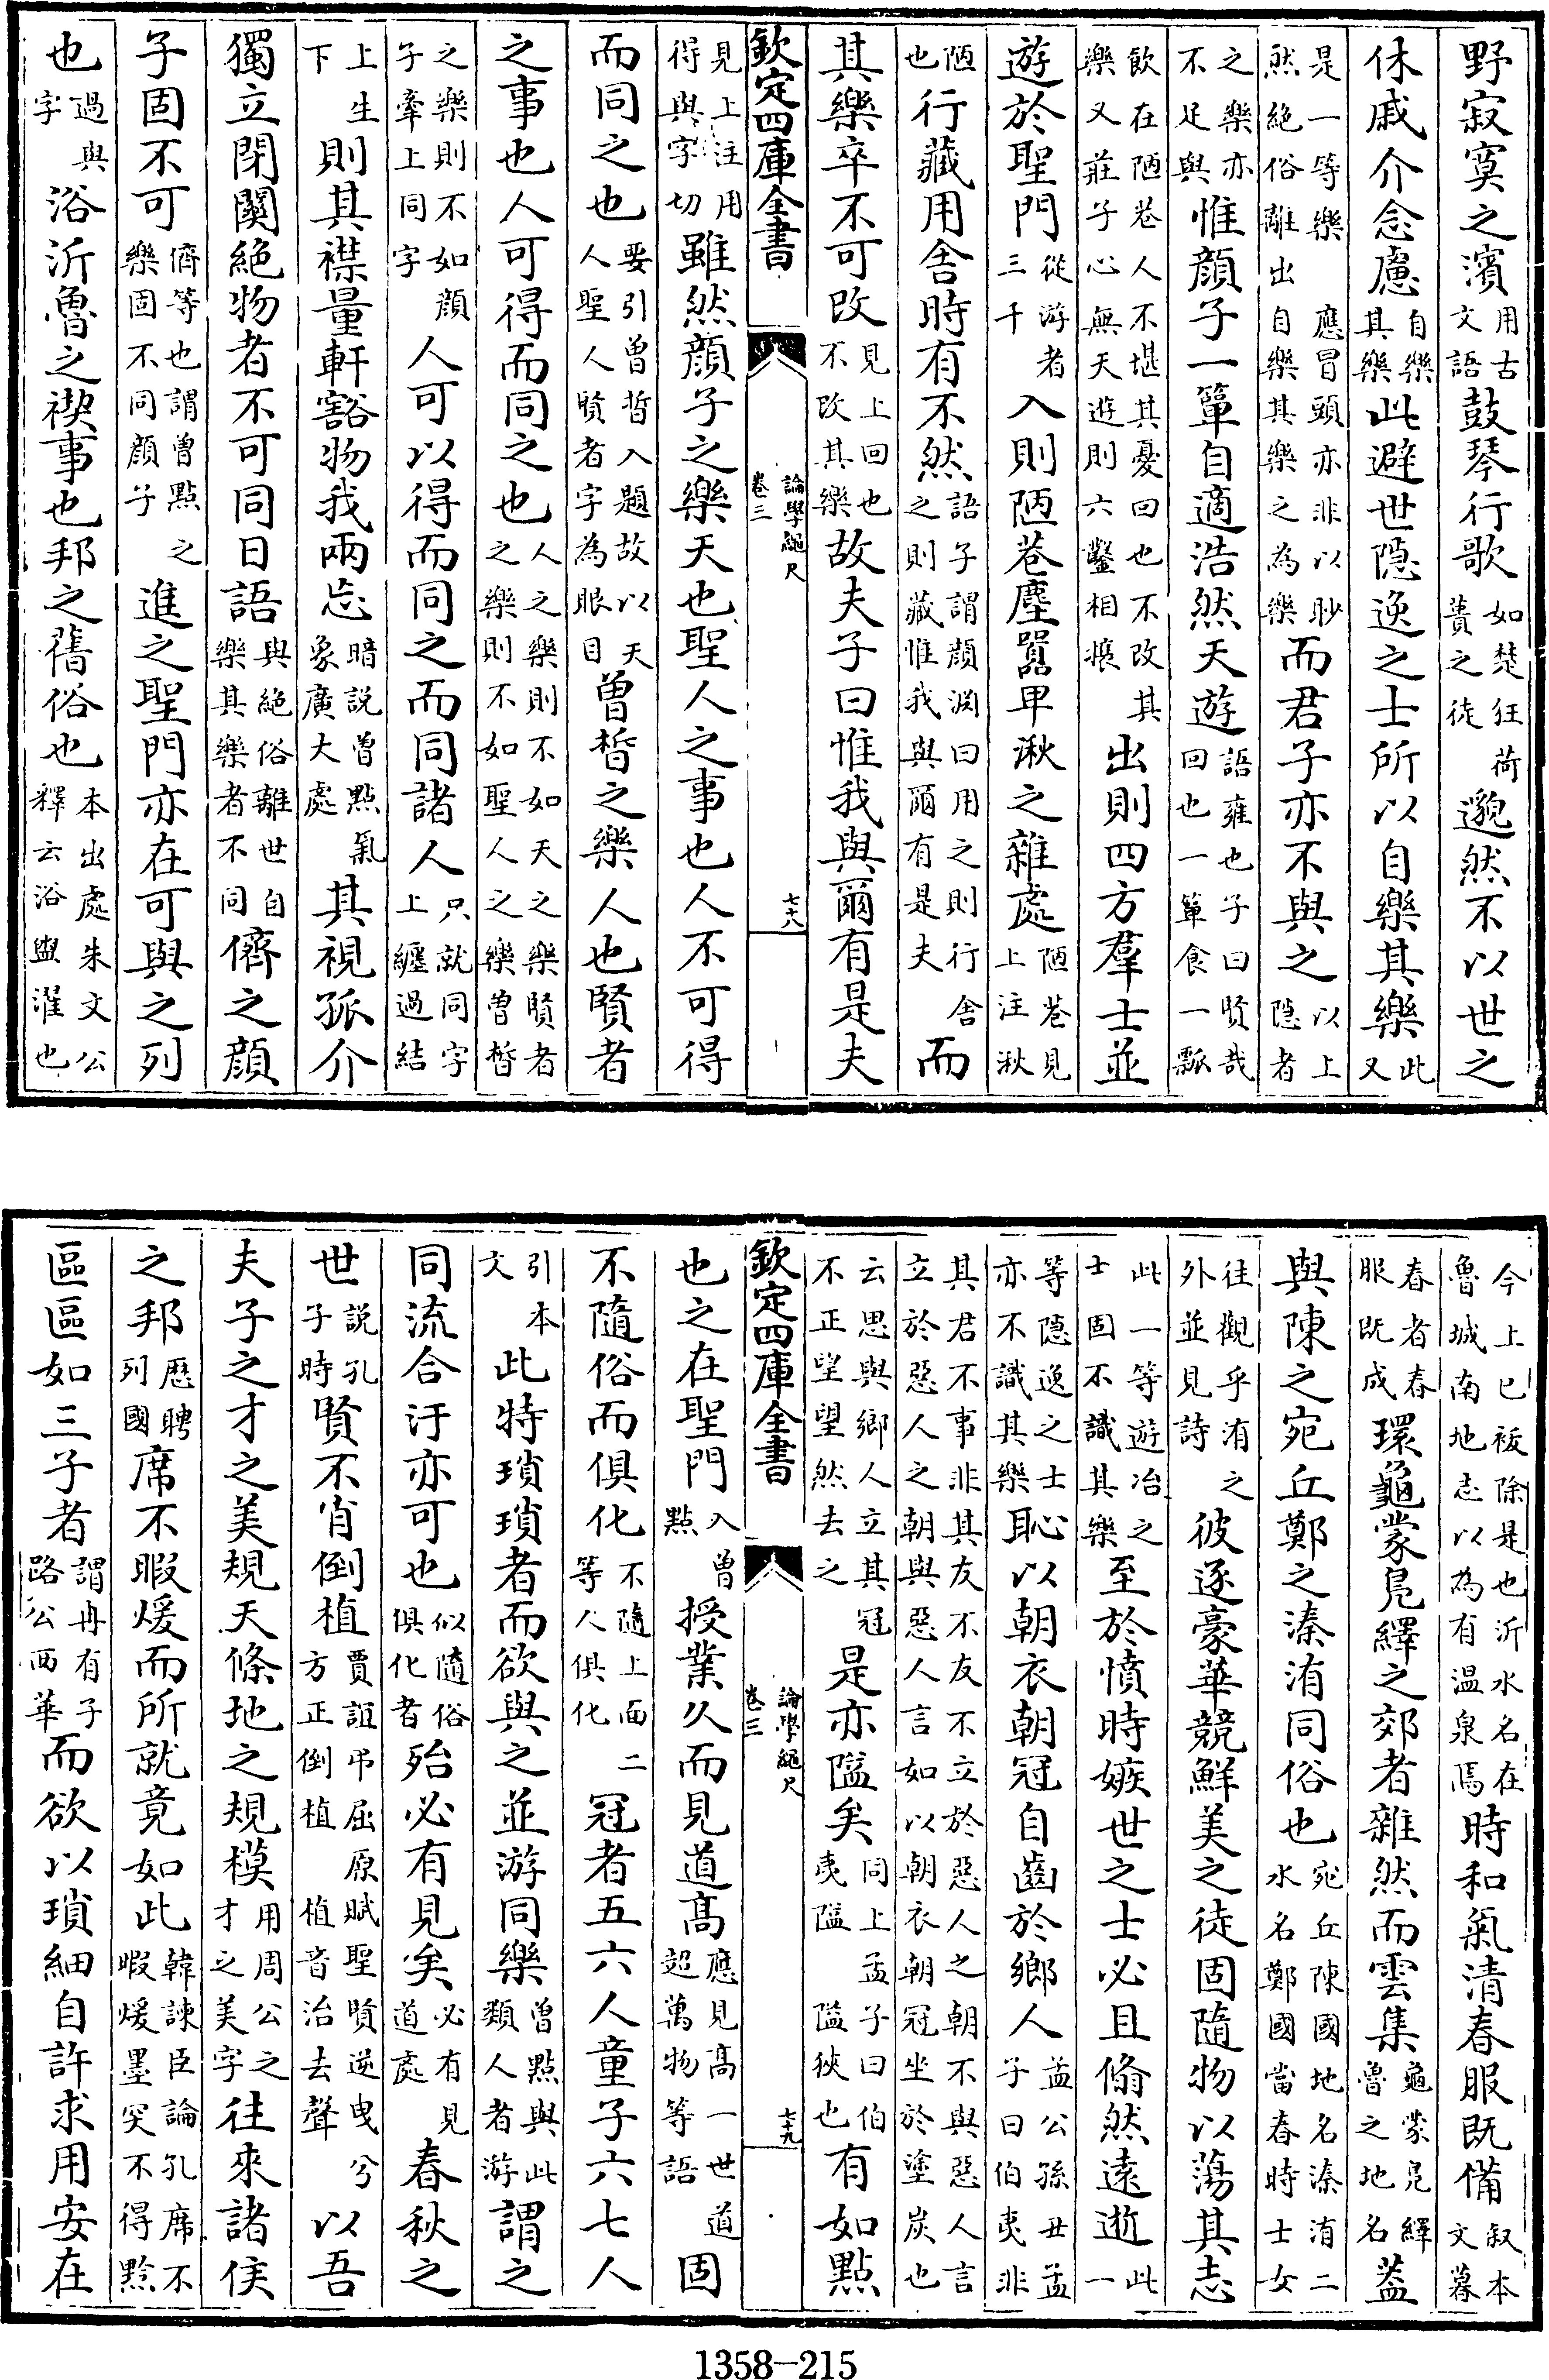 野寂寞之濱用古文語鼓琴行歌如楚狂荷蕢之徒邈然不以世之
休戚介念慮自樂其樂此避世隱逸之士所以自樂其樂此又
是一等樂然絶俗離出應冒頭亦非以自樂其樂之為樂眇而君子亦不與之以上隱者
之樂亦不足與惟顔子一簞自適浩然天遊語雍也子曰賢哉回也一簞食一瓢
飲在陋巷人不堪其憂回也不改其樂又莊子心無天遊則六鑿相攘出則四方羣士並
遊於聖門從游者三千入則陋巷塵囂卑湫之雜處陋巷見上注湫
陋也行藏用舍時有不然語子謂顔淵曰用之則行舍之則藏惟我與爾有是夫而
其樂卒不可改見上回也不改其樂故夫子曰惟我與爾有是夫
欽定四庫全書
論學繩尺
卷三
七十八
見上注用得與字切雖然顔子之樂天也聖人之事也人不可得
而同之也要引曾晳入題故以天人聖人賢者字為眼目曾晳之樂人也賢者
之事也人可得而同之也人之樂則不如天之樂賢者之樂則不如聖人之樂曾晳
之樂則不如顔子牽上同字人可以得而同之而同諸人只就同字上纏過結
上生下則其襟量軒豁物我兩忘暗説曾點氣象廣大處其視孤介
獨立閉關絶物者不可同日語與絶俗離世自樂其樂者不同儕之顔
子固不可儕等也謂曾點之樂固不同顔子進之聖門亦在可與之列
也過與字浴沂魯之禊事也邦之舊俗也本出處朱文公釋云浴盥濯也
今上巳祓除是也沂水名在魯城南地志以為有温泉焉時和氣清春服既備叙本文暮
春者春服既成環龜蒙鳧繹之郊者雜然而雲集龜蒙鳧繹魯之地名葢
與陳之宛丘鄭之溱洧同俗也宛丘陳國地名溱洧二水名鄭國當春時士女
往觀乎洧之外並見詩彼逐豪華競鮮美之徒固隨物以蕩其志
此一等遊冶之士固不識其樂至於憤時嫉世之士必且翛然遠逝此一
等隱逸之士亦不識其樂恥以朝衣朝冠自齒於鄉人孟公孫丑孟子曰伯夷非
其君不事非其友不友不立於惡人之朝不與惡人言立於惡人之朝與惡人言如以朝衣朝冠坐於塗炭也
云思與鄉人立其冠不正望望然去之是亦隘矣同上孟子曰伯夷隘隘狹也有如點
欽定四庫全書
論學繩尺
卷三
七十九
也之在聖門入曾點授業久而見道髙應見髙一世道超萬物等語固
不隨俗而俱化不隨上面二等人俱化冠者五六人童子六七人
引本文此特瑣瑣者而欲與之並游同樂曾點與此類人者游謂之
同流合汙亦可也似隨俗俱化者殆必有見矣必有見道處春秋之
世説孔子時賢不肖倒植賈誼弔屈原賦聖賢逆曳兮方正倒植植音治去聲以吾
夫子之才之美規天條地之規模用周公之才之美字往來諸侯
之邦歴聘列國席不暇煖而所就竟如此韓諫臣論孔席不暇煖墨突不得黔
區區如三子者謂冉有子路公西華而欲以瑣細自許求用安在
1358-215